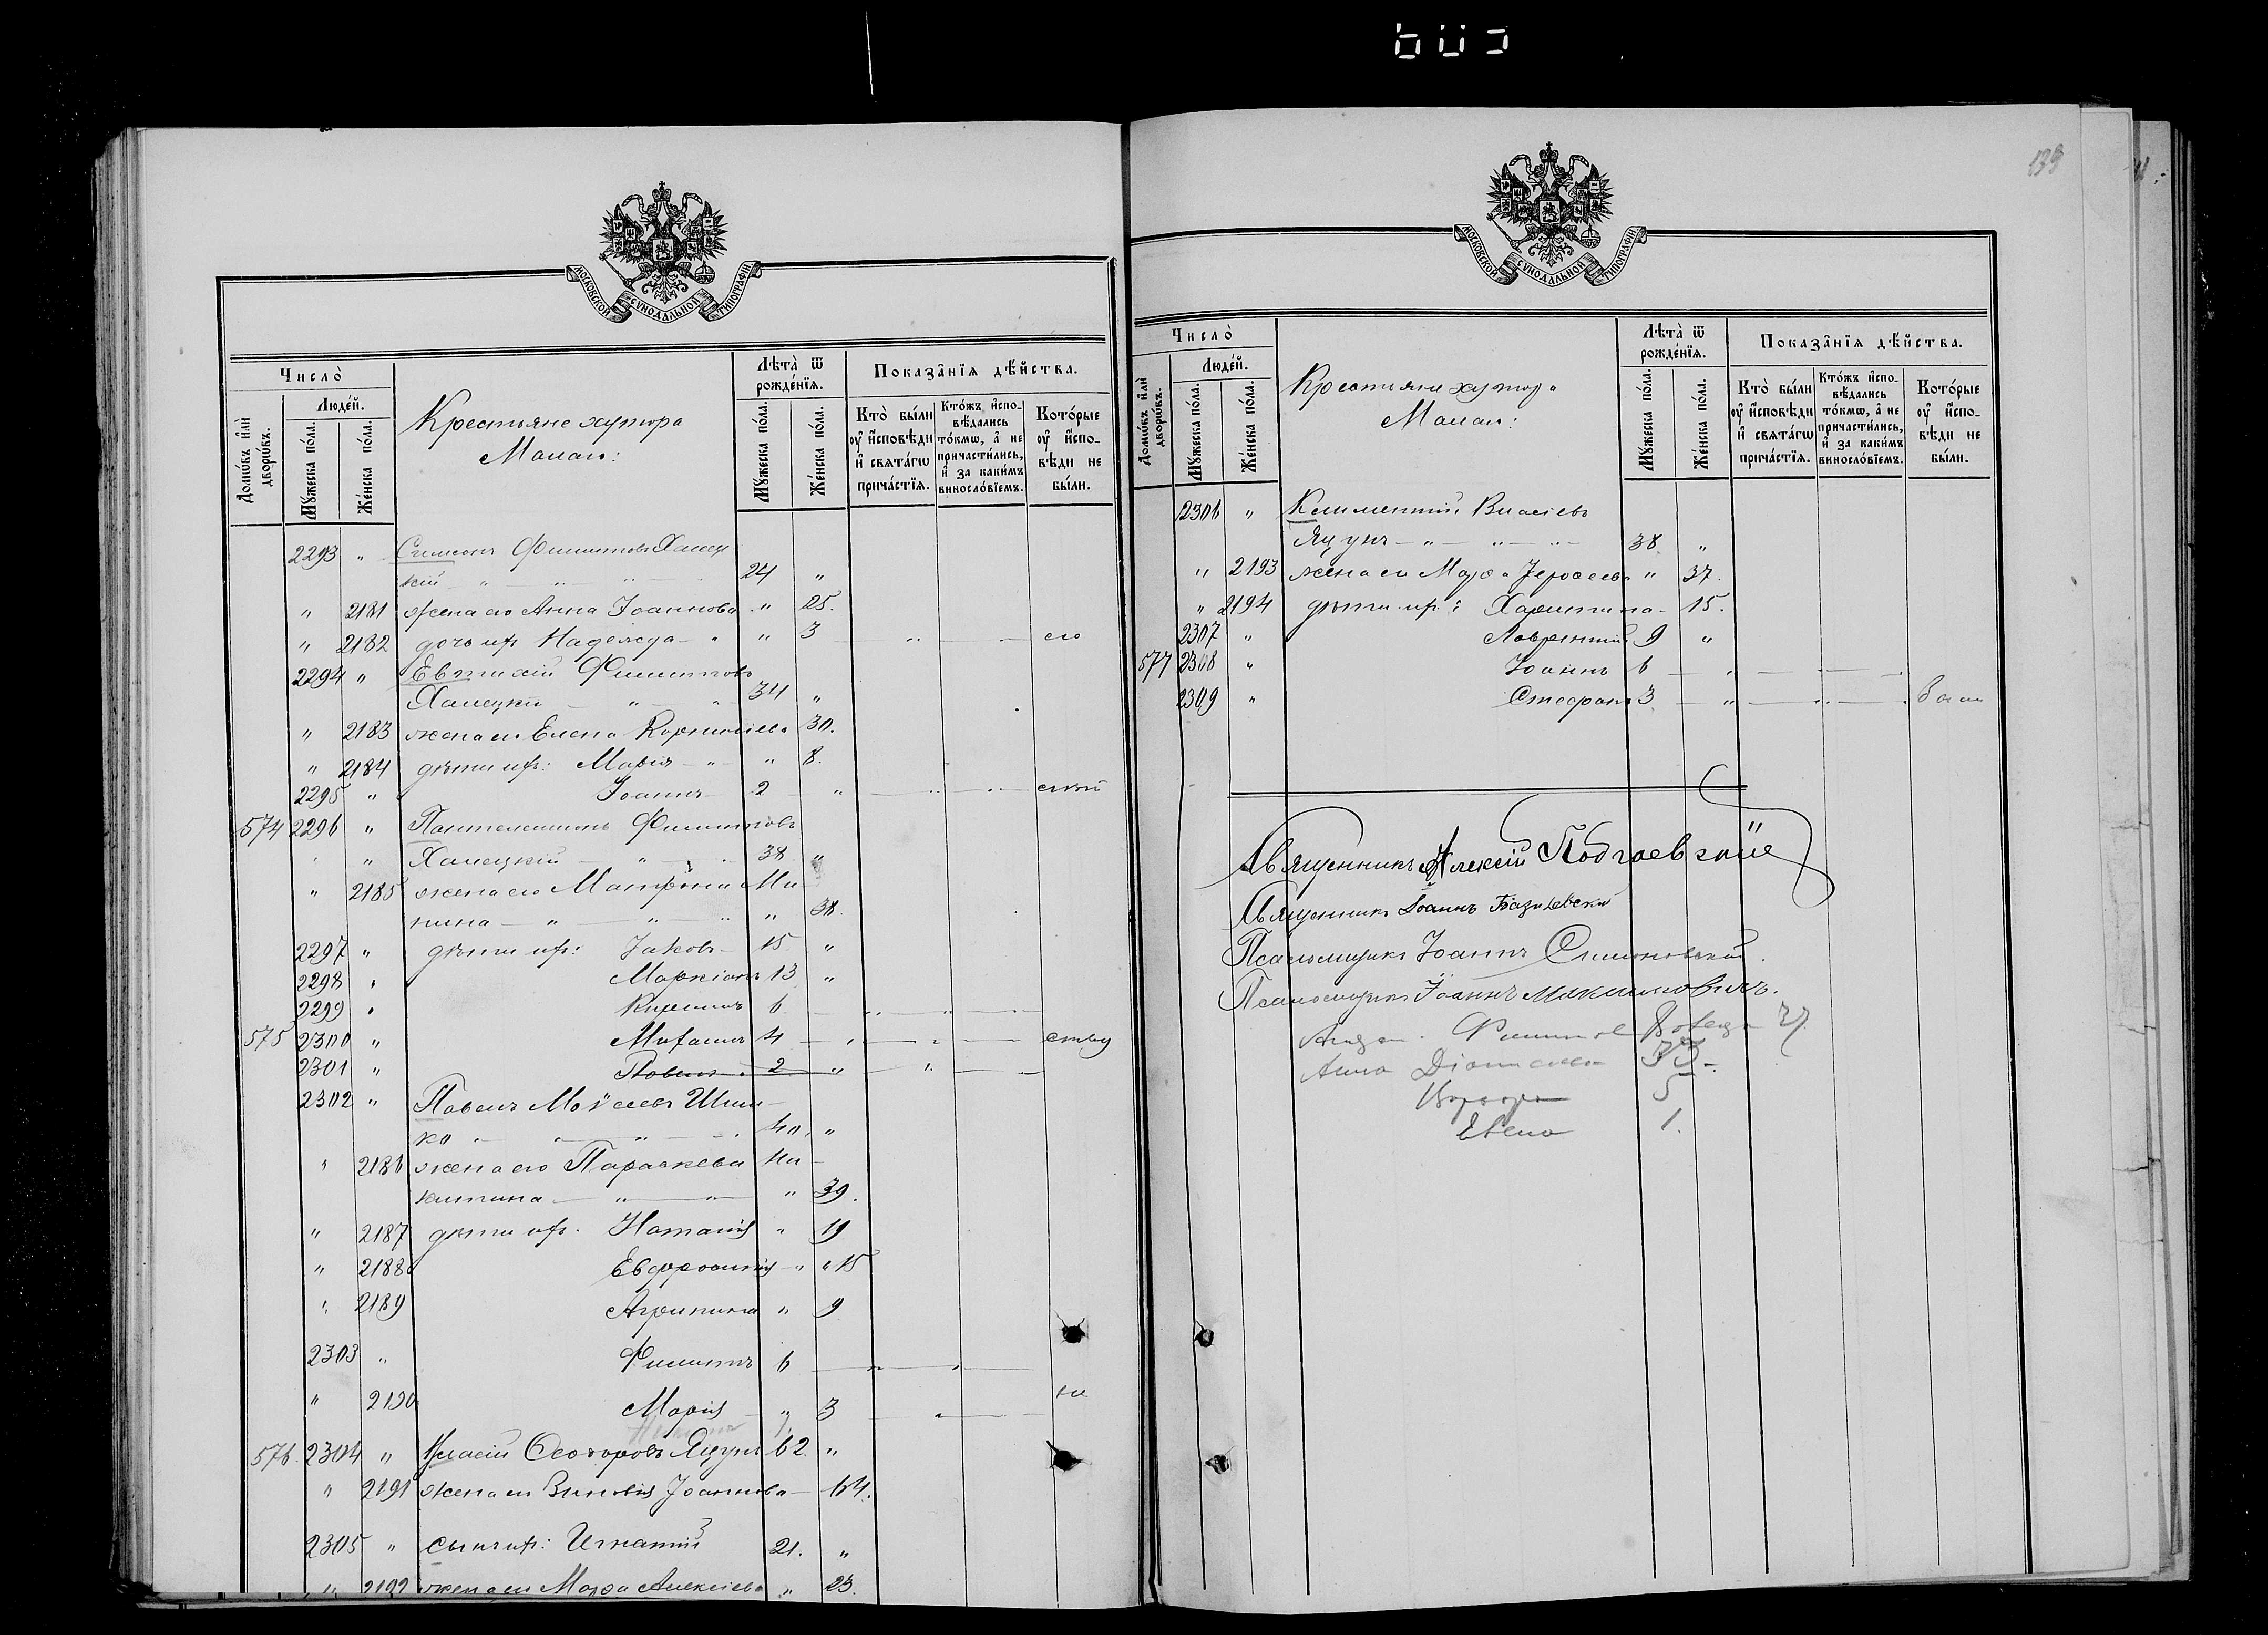 603
МОСКОВСКОЙ СУНОДАЛЬНОЙ ТИПОГРАФІИ
Число̀
Людéй.
Домѡ́въ и҆лѝ дворѡ́въ.
Мꙋ́жеска по́ла.
Же́нска по́ла.
Крестьяне хутора
Лѣта̀ ѿ рождéнїѧ.
Мꙋ́жеска по́ла.
Же́нска по́ла.
Показа̂нїѧ дѣ́йства.
Кто̀ бы́ли оу҆ и҆́сповѣди и҆ свѧта́гѡ прича́стїѧ.
Кто́жъ и҆спо-вѣдались то́кмѡ, а҆ не причасти́лись, и҆ за каки́мъ винослóвїемъ.
Кото́рые оу҆ и҆́спо-вѣди не бы́ли.
2293 " Симеонъ Филипповъ Халец
кій " " " 24 "
" 2181 жена его Анна Іоаннова " 25.
" 2182 дочь ихъ Надежда " " 3
2294 " Евтихій Филипповъ
Халецкій " " 34 "
" 2183 жена его Елена Корниліева 30.
" 2184 дѣти ихъ: Марія " " 8.
2295 " Іоаннъ 2 "
574 2296 " Пантелеимонъ Филипповъ
" Халецкій " 38 "
" 2185 жена его Матрона Ми
нина " " " " 38.
2297 " дѣти ихъ: Іаковъ 15 "
2298 " Маркіанъ 13 "
2299 " Кириллъ 6
575 2300 " 4
2301 " Павелъ 2 "
2302 " Павелъ Моѵсеевъ Шпи
ка " " 40 "
" 2186 жена его Параскева Ни
китина " " " 39.
" 2187 дѣти ихъ: Наталія " 19
" 2188 Евфросинія " 15
" 2189 Агрипина " 9
2303 " Филиппъ 6
" 2190 Марія " 3
576. 2304 " Власій Ѳеодоровъ Яцунъ 62 "
" 2191 жена его Зиновія Іоаннова 64.
2305 " сынъ ихъ: Игнатій 21. "
" 2192 жена его Марѳа Алексіева " 23.
139
МОСКОВСКОЙ СУНОДАЛЬНОЙ ТИПОГРАФІИ
Число̀
Людéй.
Домѡ́въ и҆лѝ дворѡ́въ.
Мꙋ́жеска по́ла.
Же́нска по́ла.
Крестьяне хутора
Лѣта̀ ѿ рождéнїѧ.
Мꙋ́жеска по́ла.
Же́нска по́ла.
Показа̂нїѧ дѣ́йства.
Кто̀ бы́ли оу҆ и҆́сповѣди и҆ свѧта́гѡ прича́стїѧ.
Кто́жъ и҆спо-вѣдались то́кмѡ, а҆ не причасти́лись, и҆ за каки́мъ винослóвїемъ.
Кото́рые оу҆ и҆́спо-вѣди не бы́ли.
2306 " Климентій Власіевъ
Яцунъ " " " 38. "
" 2193 жена его " 37.
" 2194 дѣти ихъ: Харитина 15.
2307 " Лаврентій 9 "
577 2308 " Іоаннъ 6
2309 " Стефанъ 3 "
Священникъ Алексій
Священникъ Іоаннъ
Псаломщикъ Іоаннъ Симоновскій.
Псаломщикъ Іоаннъ Максимовичъ.
27
Анна 33
Варвара 5
Елена 1.